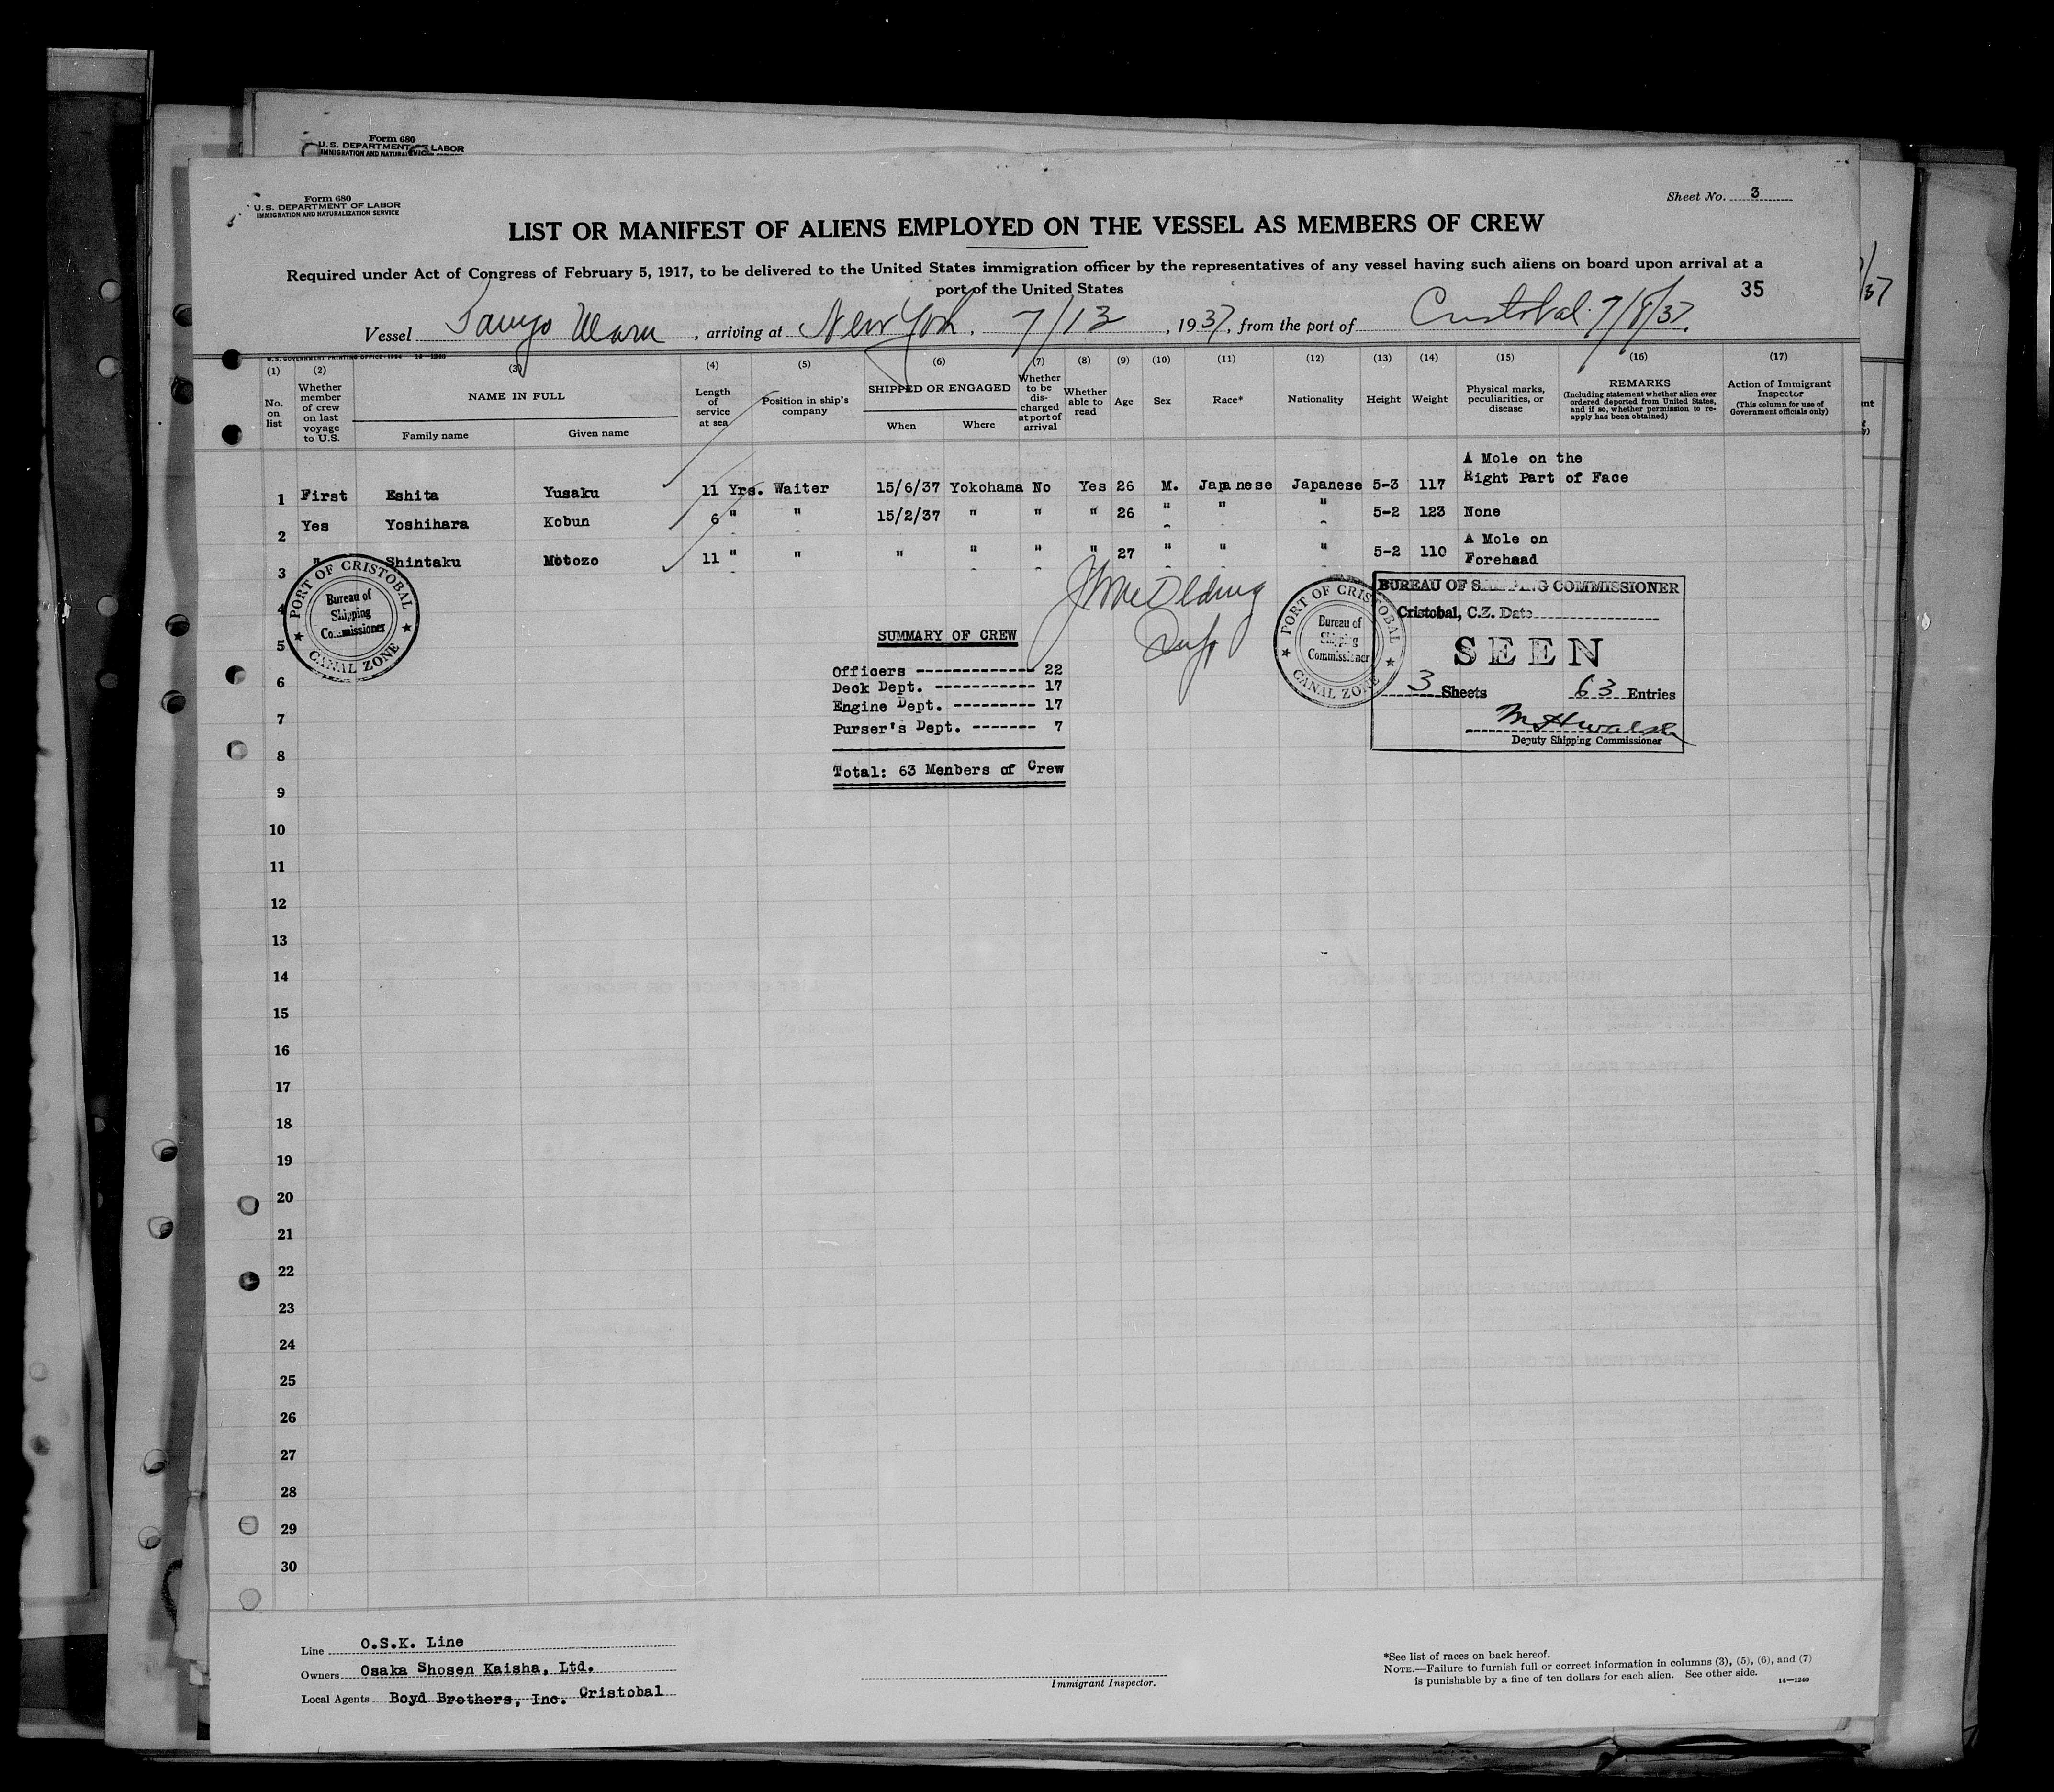 Form 680
U.S. DEPARTMENT OF LABOR
Form 680
U.S. DEPARTMENT OF LABOR
IMMIGRATION AND NATURALIZATION SERVICE
Sheet No. 3
LIST OR MANIFEST OF ALIENS EMPLOYED ON THE VESSEL AS MEMBERS OF CREW
Required under Act of Congress of February 5, 1917, to be delivered to the United States immigration officer by the representatives of any vessel having such aliens on board upon arrival at a
port of the United States
35
Vessel Maru, arriving at New York. 7/13, 1937, from the port of Cristobal 7/8/37.
U.S. GOVERNMENT PRINTING OFFICE: 1934 14—1240
(1) (2) (3) (4) (5) (6) (7) (8) (9) (10) (11) (12) (13) (14) (15) (16) (17)
No. on list
Whether member of crew on last voyage to U.S.
NAME IN FULL
Family name
Given name
Length of service at sea
Position in ship's company
SHIPPED OR ENGAGED
When
Where
Whether to be discharged at port of arrival
Whether able to read
Age
Sex
Race*
Nationality
Height
Weight
Physical marks, peculiarities, or disease
REMARKS
(Including statement whether alien ever ordered deported from United States, and if so, whether permission to reapply has been obtained)
Action of Immigrant Inspector
(This column for use of Government officials only)
A Mole on the
1 First Eshita Yusaku 11 Yrs. Waiter 15/6/37 Yokohama No Yes 26 M. Japanese Japanese 5-3 117 Right Part of Face
2 Yes Yoshihara Kobun 6 " " 15/2/37 " " " 26 " " " 5-2 123 None
A Mole on
3 " Shintaku Motozo 11 " " " " " " 27 " " " 5-2 110 Forehaad
PORT OF CRISTOBAL
Bureau of
Shipping
Commissioner
CANAL ZONE
PORT OF CRISTOBAL
Bureau of
Shipping
Commissioner
CANAL ZONE
BUREAU OF SHIPPING COMMISSIONER
Cristobal, C.Z. Date
SEEN
3 Sheets 63 Entries
Deputy Shipping Commissioner
SUMMARY OF CREW
Officers ------------- 22
Deck Dept. ----------- 17
Engine Dept. --------- 17
Purser's Dept. ------- 7
Total: 63 Menbers of Crew
4
5
6
7
8
9
10
11
12
13
14
15
16
17
18
19
20
21
22
23
24
25
26
27
28
29
30
Line O.S.K. Line
Owners Osaka Shosen Kaisha, Ltd.
Local Agents Boyd Brothers, Inc. Cristobal
Immigrant Inspector.
*See list of races on back hereof.
NOTE.—Failure to furnish full or correct information in columns (3), (5), (6), and (7)
is punishable by a fine of ten dollars for each alien. See other side.
14—1240